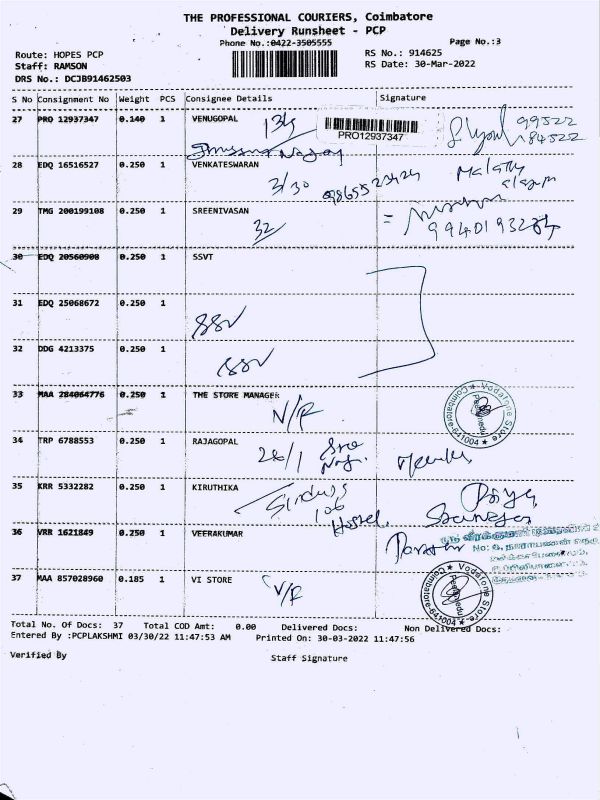 THE PROFESSIONAL COURIERS, Coimbatore
Delivery Runsheet - PCP
Phone No.:0422-3505555
Page No.:3
Route: HOPES PCP
Staff: RAMSON
DRS No.: DCJB91462503
RS No.: 914625
RS Date: 30-Mar-2022
S No Consignment No Weight PCS Consignee Details Signature
27 PRO 12937347 0.140 1 VENUGOPAL 134 PRO12937347 99522
84522
28 EDQ 16516527 0.250 1 VENKATESWARAN
3/30 Malathy
29 TMG 200199108 0.250 1 SREENIVASAN
32
30 EDQ 20560908 0.250 1 SSVT
31 EDQ 25068672 0.250 1
SSV
32 DDG 4213375 0.250 1
SSV
33 MAA 284064776 0.250 1 THE STORE MANAGER
N/R
Vodafone Store
Coimbatore-641004
34 TRP 6788553 0.250 1 RAJAGOPAL
26/1
35 KRR 5332282 0.250 1 KIRUTHIKA
106
Hostel
Priya
36 VRR 1621849 0.250 1 VEERAKUMAR
37 MAA 857028960 0.185 1 VI STORE
V/R
Vodafone Store
Peelamedu
Coimbatore-641004
Total No. Of Docs: 37 Total COD Amt: 0.00 Delivered Docs: Non Delivered Docs:
Entered By :PCPLAKSHMI 03/30/22 11:47:53 AM Printed On: 30-03-2022 11:47:56
Verified By
Staff Signature